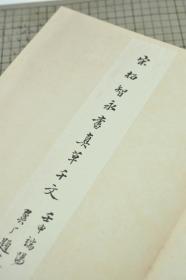 宋拓智永書真草千文
壬申端陽
題